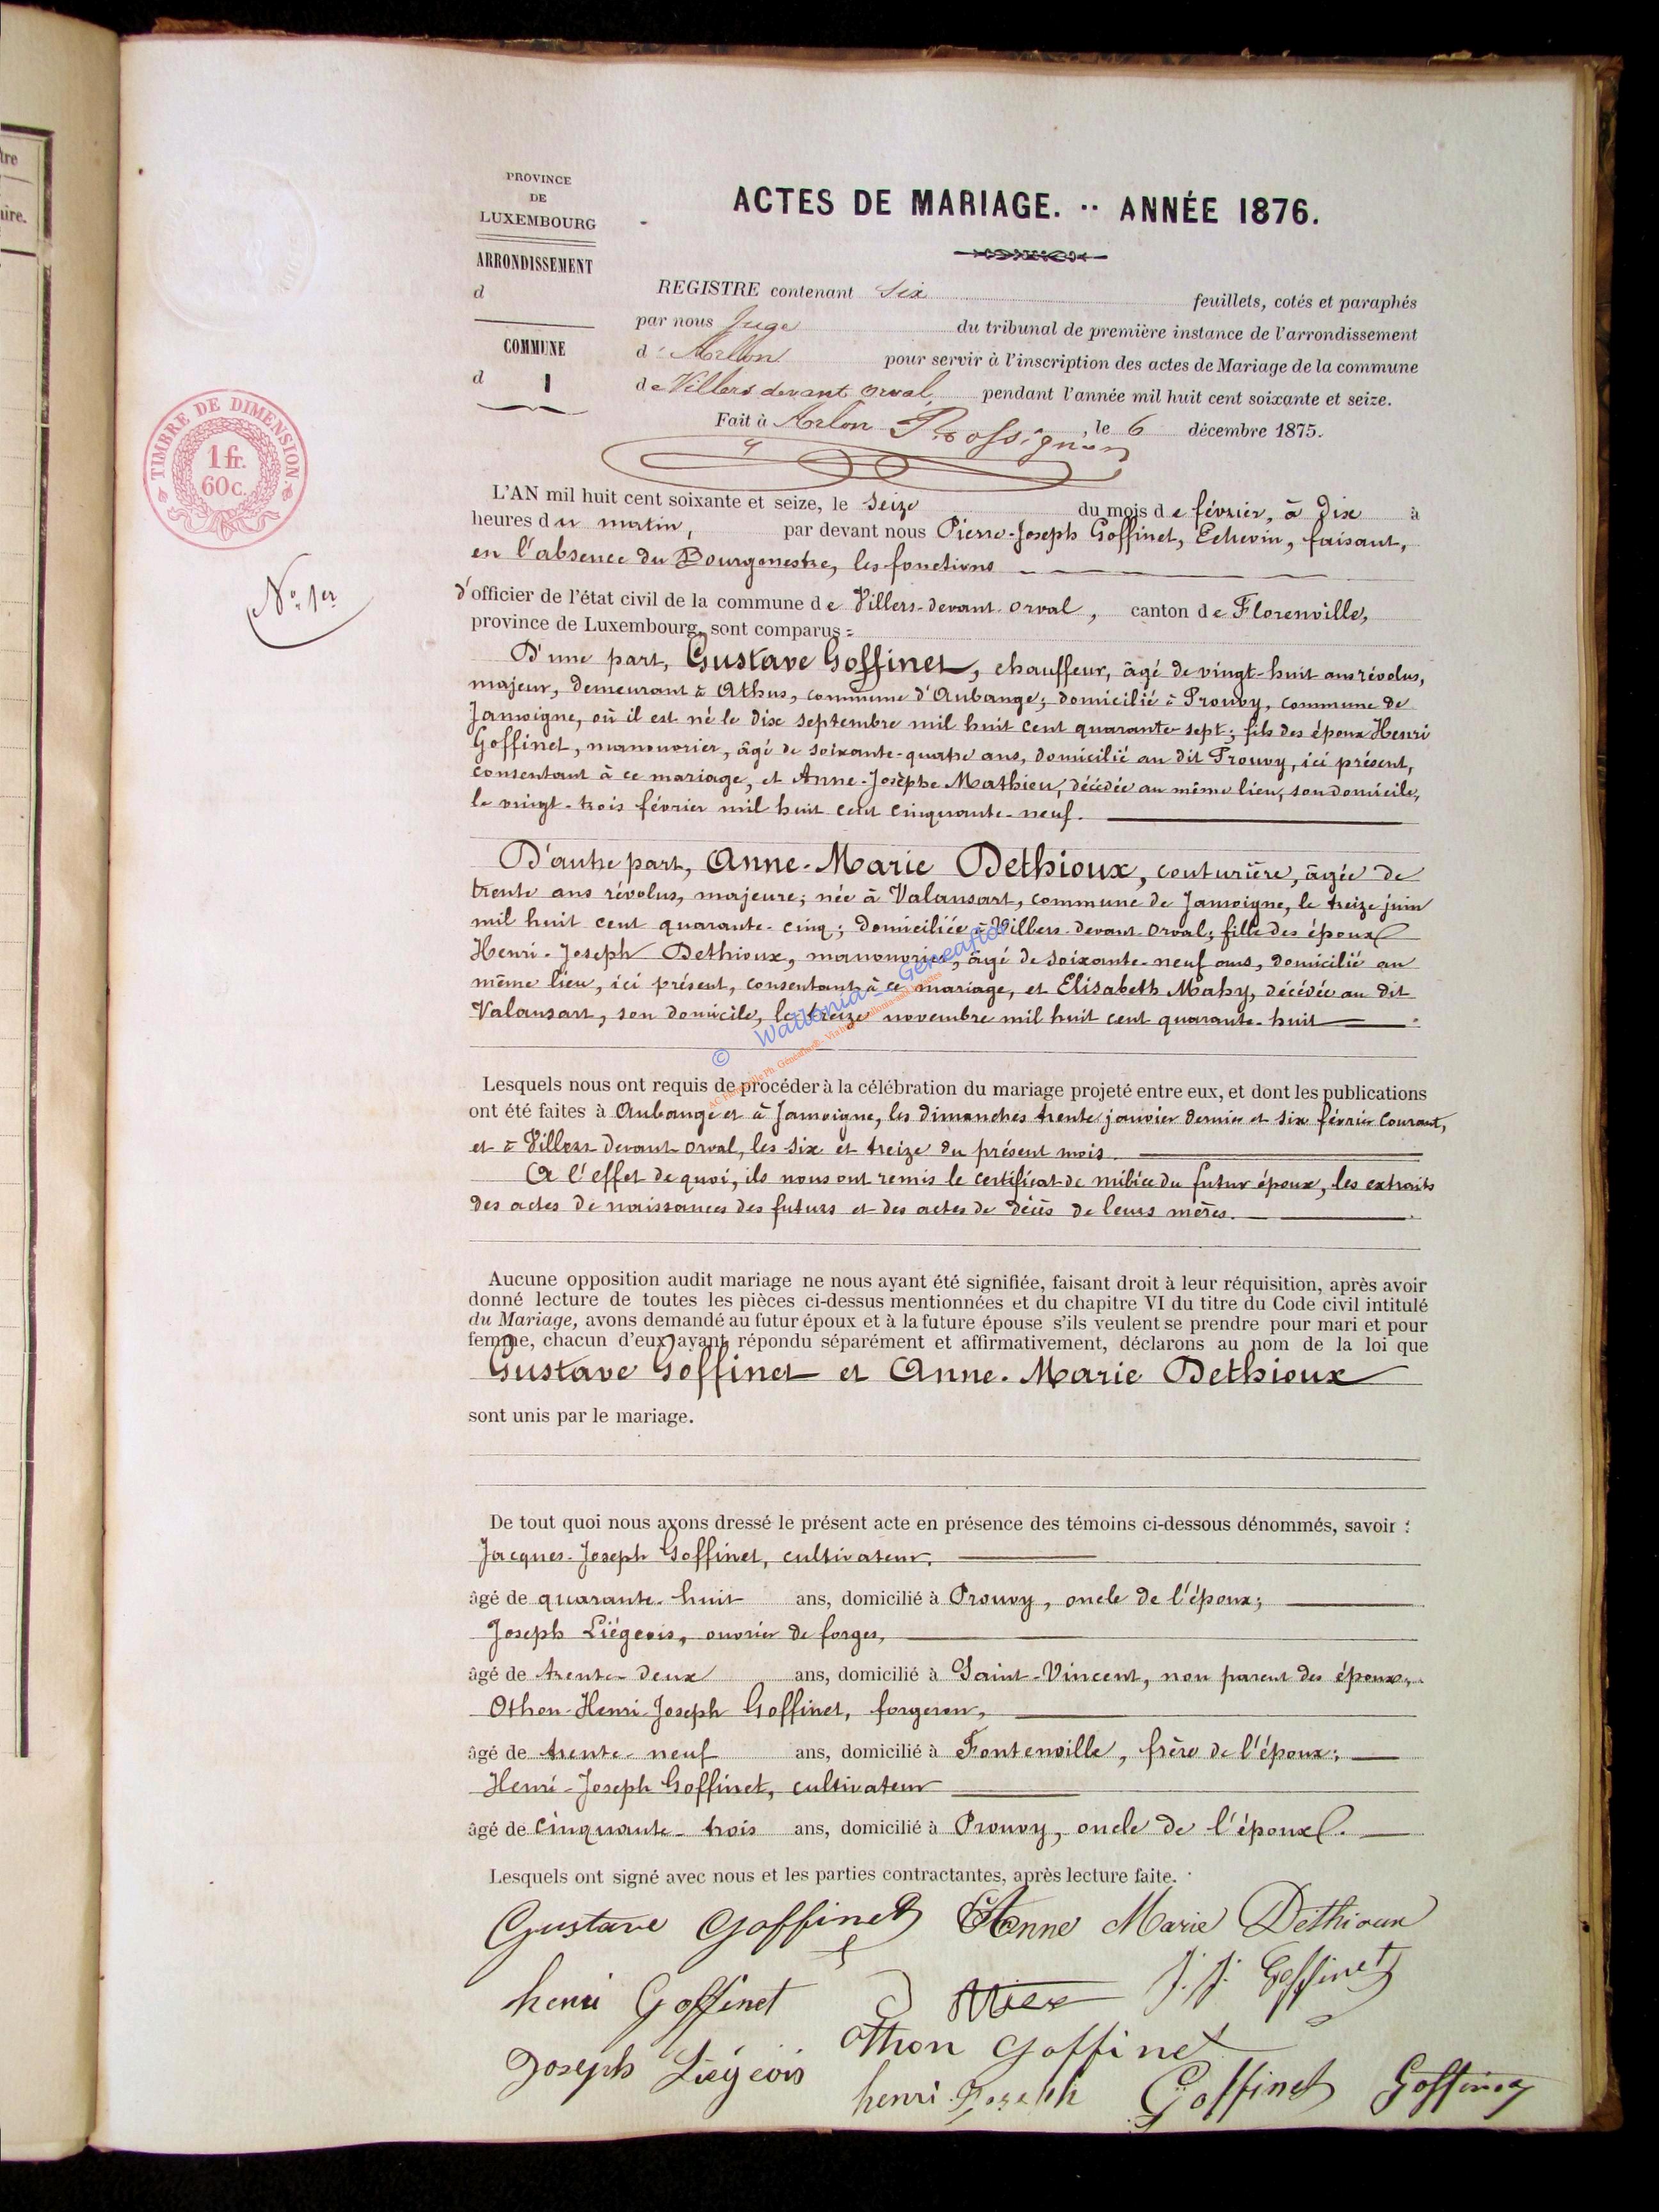 tre
aire.
PROVINCE
DE
LUXEMBOURG
ARRONDISSEMENT
d
COMMUNE
d 1
ACTES DE MARIAGE. -- ANNÉE 1876.
REGISTRE contenant six feuillets, cotés et paraphés
par nous Juge du tribunal de première instance de l'arrondissement
d' Arlon pour servir à l'inscription des actes de Mariage de la commune
de Villers devant orval, pendant l'année mil huit cent soixante et seize.
Fait à Arlon, le 6 décembre 1875.
TIMBRE DE DIMENSION
1 fr.
60 c.
N° 1er
L'AN mil huit cent soixante et seize, le seize du mois de février, à dix à
heures du matin, par devant nous Pierre-Joseph Goffinet, Echevin, faisant,
en l'absence du Bourgmestre, les fonctions
d'officier de l'état civil de la commune de Villers-devant-orval, canton de Florenville,
province de Luxembourg, sont comparus :
D'une part, Gustave Goffinet, chauffeur, âgé de vingt-huit ans révolus,
majeur, demeurant à Athus, commune d'Aubange; domicilié à Prouvy, commune de
Jamoigne, où il est né le dix septembre mil huit cent quarante-sept; fils des époux Henri
Goffinet, manouvrier, âgé de soixante-quatre ans, domicilié au dit Prouvy, ici présent,
consentant à ce mariage, et Anne-Josèphe Mathieu, décédée au même lieu, son domicile,
le vingt-trois février mil huit cent cinquante-neuf.
D'autre part, Anne-Marie Dethioux, couturière, âgée de
trente ans révolus, majeure; née à Valansart, commune de Jamoigne, le treize juin
mil huit cent quarante-cinq; domiciliée à Villers-devant-orval; fille des époux
Henri-Joseph Dethioux, manouvrier, âgé de soixante-neuf ans, domicilié au
même lieu, ici présent, consentant à ce mariage, et Elisabeth Mahy, décédée au dit
Valansart, son domicile, le treize novembre mil huit cent quarante-huit
© Wallonia - Geneafloc
Lesquels nous ont requis de procéder à la célébration du mariage projeté entre eux, et dont les publications
ont été faites à Aubange et à Jamoigne, les dimanches trente janvier dernier et six février courant,
et à Villers-devant-orval, les six et treize du présent mois.
A l'effet de quoi, ils nous ont remis le certificat de milice du futur époux, les extraits
des actes de naissances des futurs et des actes de décès de leurs mères.
Aucune opposition audit mariage ne nous ayant été signifiée, faisant droit à leur réquisition, après avoir
donné lecture de toutes les pièces ci-dessus mentionnées et du chapitre VI du titre du Code civil intitulé
du Mariage, avons demandé au futur époux et à la future épouse s'ils veulent se prendre pour mari et pour
femme, chacun d'eux ayant répondu séparément et affirmativement, déclarons au nom de la loi que
Gustave Goffinet et Anne-Marie Dethioux
sont unis par le mariage.
De tout quoi nous avons dressé le présent acte en présence des témoins ci-dessous dénommés, savoir :
Jacques-Joseph Goffinet, cultivateur,
âgé de quarante-huit ans, domicilié à Prouvy, oncle de l'époux;
Joseph Liégeois, ouvrier de forges,
âgé de trente-deux ans, domicilié à Saint-Vincent, non parent des époux,
Othon-Henri-Joseph Goffinet, forgeron,
âgé de trente-neuf ans, domicilié à Fontenoille, frère de l'époux;
Henri-Joseph Goffinet, cultivateur
âgé de cinquante-trois ans, domicilié à Prouvy, oncle de l'époux.
Lesquels ont signé avec nous et les parties contractantes, après lecture faite.
Gustave Goffinet Anne Marie Dethioux
henri Goffinet J. J. Goffinet
Joseph Liégeois Othon Goffinet
henri Joseph Goffinet Goffinet